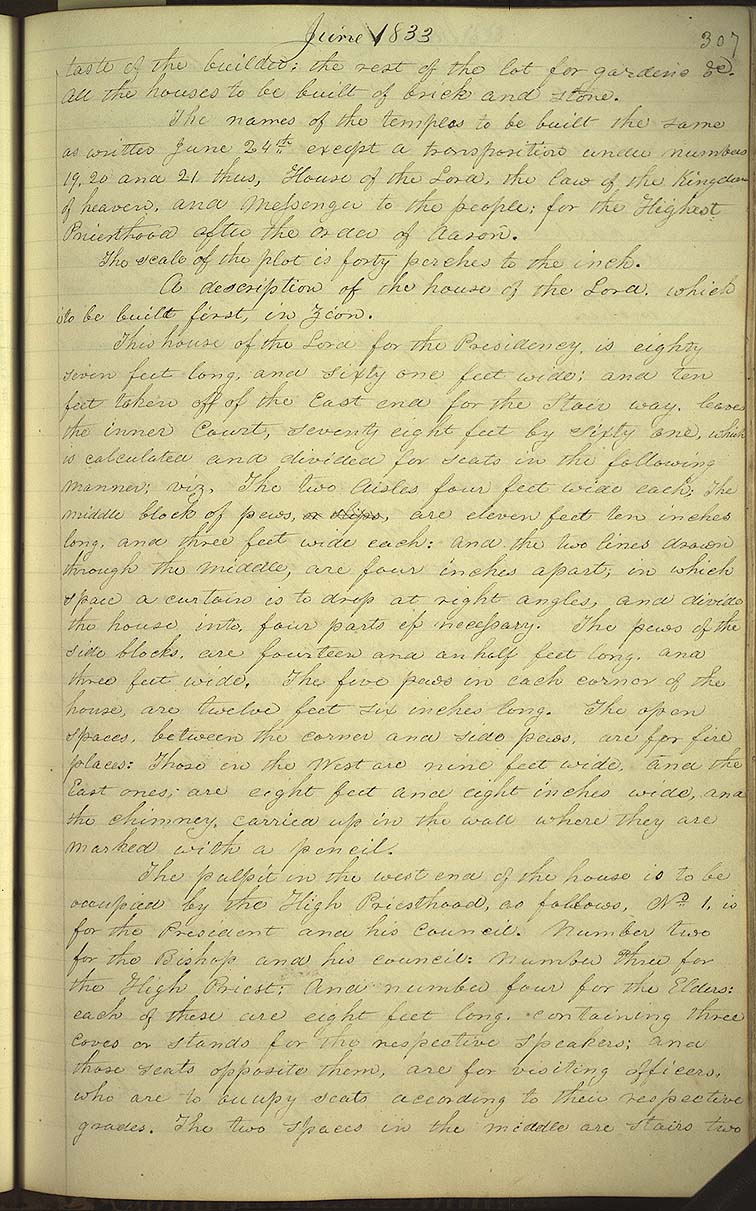 June 1833
307
taste of the builder; the rest of the lot for gardens &c.
All the houses to be built of brick and stone.
The names of the temples to be built the same
as written June 24th except a transposition under numbers
19, 20 and 21 thus, House of the Lord, the law of the Kingdom
of heaven, and Messenger to the people; for the Highest
Priesthood after the order of Aaron.
The scale of the plot is forty perches to the inch.
A description of the house of the Lord, which
is to be built first, in Zion.
This house of the Lord for the Presidency, is eighty
seven feet long, and sixty one feet wide; and ten
feet taken off of the East end for the Stair way, leaves
the inner Court, seventy eight feet by sixty one, which
is calculated and divided for seats in the following
manner; viz. The two Aisles four feet wide each; The
middle block of pews, or slips, are eleven feet ten inches
long, and three feet wide each: and the two lines drawn
through the middle, are four inches apart; in which
space a curtain is to drop at right angles, and divide
the house into, four parts if necessary. The pews of the
side blocks, are fourteen and an half feet long, and
three feet wide. The five pews in each corner of the
house, are twelve feet six inches long. The open
spaces, between the corner and side pews, are for fire
places: Those in the West are nine feet wide, and the
East ones, are eight feet and eight inches wide, and
the chimney, carried up in the wall where they are
marked with a pencil.
The pulpit in the west end of the house is to be
occupied by the High Priesthood, as follows, No 1, is
for the President and his Council. Number two
for the Bishop and his council: Number three for
the High Priest; And number four for the Elders:
each of these are eight feet long, containing three
coves or stands for the respective speakers; and
those seats opposite them, are for visiting officers,
who are to occupy seats according to their respective
grades. The two spaces in the middle are stairs two